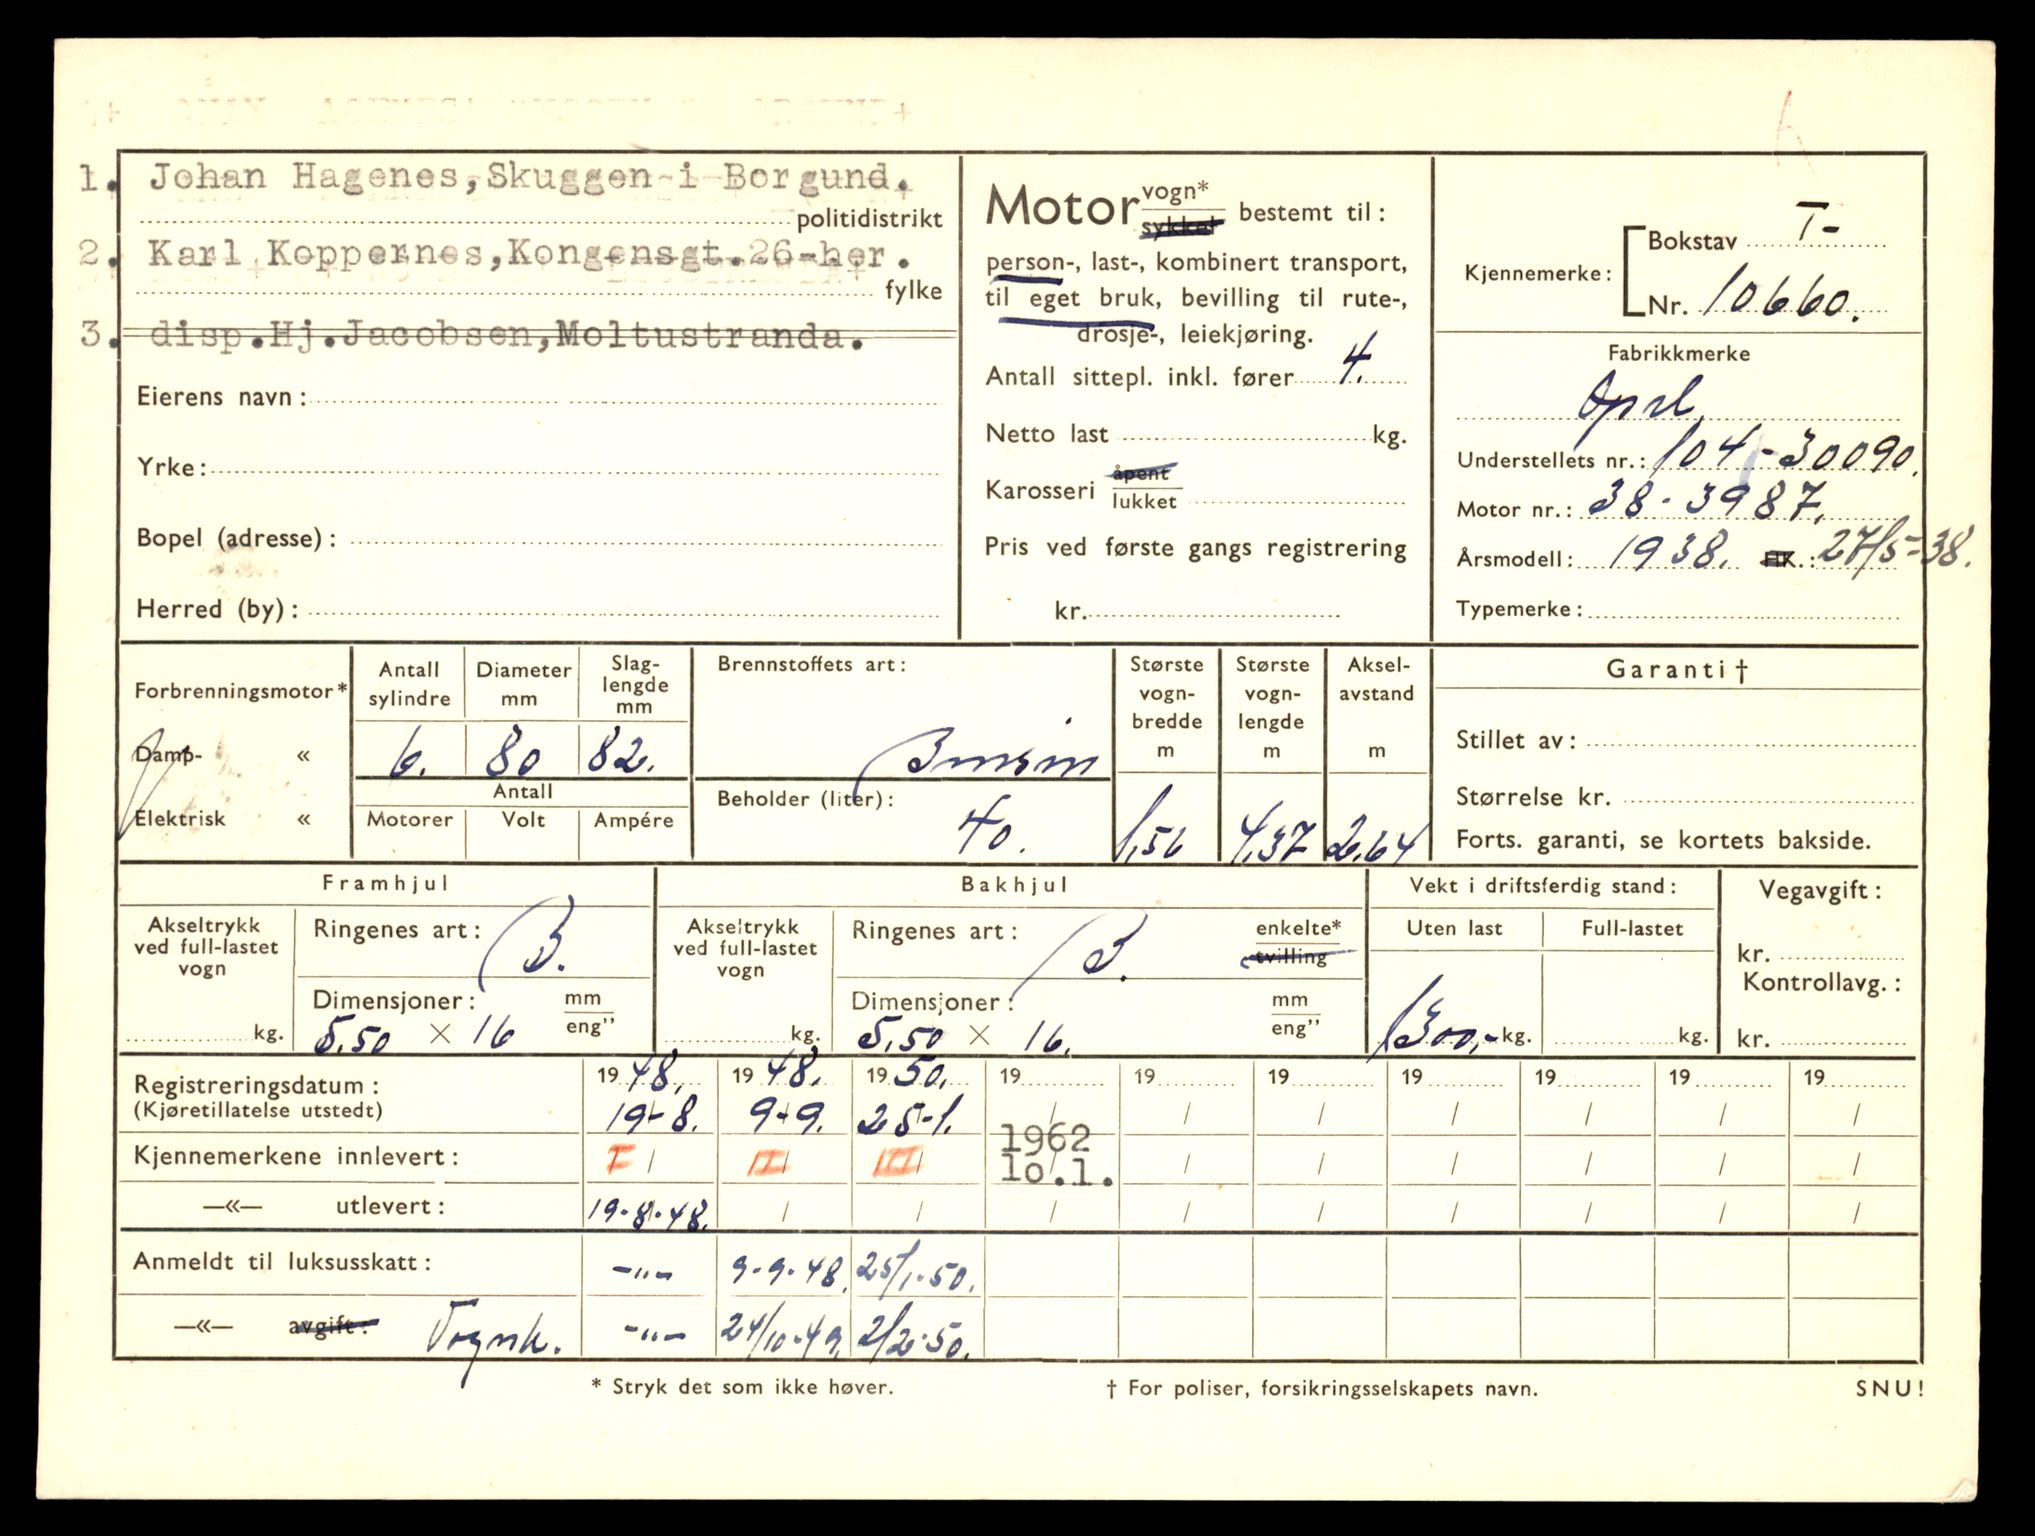 1. Johan Hagenes, Skuggen i Borgund.
politidistrikt
2. Karl Koppernes, Kongensgt. 26-her.
fylke
3. disp. Hj. Jacobsen, Moltustranda.
Eierens navn:
Yrke:
Bopel (adresse):
Herred (by):
Motor vogn* sykkel bestemt til:
person-, last-, kombinert transport,
til eget bruk, bevilling til rute-,
drosje-, leiekjøring.
Antall sittepl. inkl. fører 4.
Netto last kg.
Karosseri åpent lukket
Pris ved første gangs registrering
kr.
Kjennemerke: Bokstav T-
Nr. 10660.
Fabrikkmerke
Opel.
Understellets nr.: 104-30090.
Motor nr.: 38-3987.
Årsmodell: 1938. HK.: 27/5-38.
Typemerke:
Forbrenningsmotor*
Damp- «
Elektrisk «
Antall sylindre 6.
Diameter mm 80
Slag-lengde mm 82.
Antall
Motorer Volt Ampére
Brennstoffets art:
Bensin
Beholder (liter):
40.
Største vogn-bredde m 1,56
Største vogn-lengde m 4,37
Aksel-avstand m 2,64
Garanti †
Stillet av:
Størrelse kr.
Forts. garanti, se kortets bakside.
Framhjul
Akseltrykk ved full-lastet vogn kg.
Ringenes art: B.
Dimensjoner: mm eng”
5,50 × 16
Bakhjul
Akseltrykk ved full-lastet vogn kg.
Ringenes art: B. enkelte* tvilling
Dimensjoner: mm eng”
5,50 × 16.
Vekt i driftsferdig stand:
Uten last Full-lastet
1300,- kg. kg.
Vegavgift:
kr.
Kontrollavg.:
kr.
Registreringsdatum: 1948. 1948. 1950. 19 19 19 19 19 19 19
(Kjøretillatelse utstedt) 19-8. 9-9. 25-1. / / / / / / /
Kjennemerkene innlevert: I / II / III / 1962 10.1. / / / / / /
—«— utlevert: 19.8.48. / / / / / / / / /
Anmeldt til luksusskatt: -"- 9-9-48. 25/1-50.
—«— avgift: Vognk. -"- 24/10-49. 2/2-50.
* Stryk det som ikke høver.
† For poliser, forsikringsselskapets navn.
SNU!